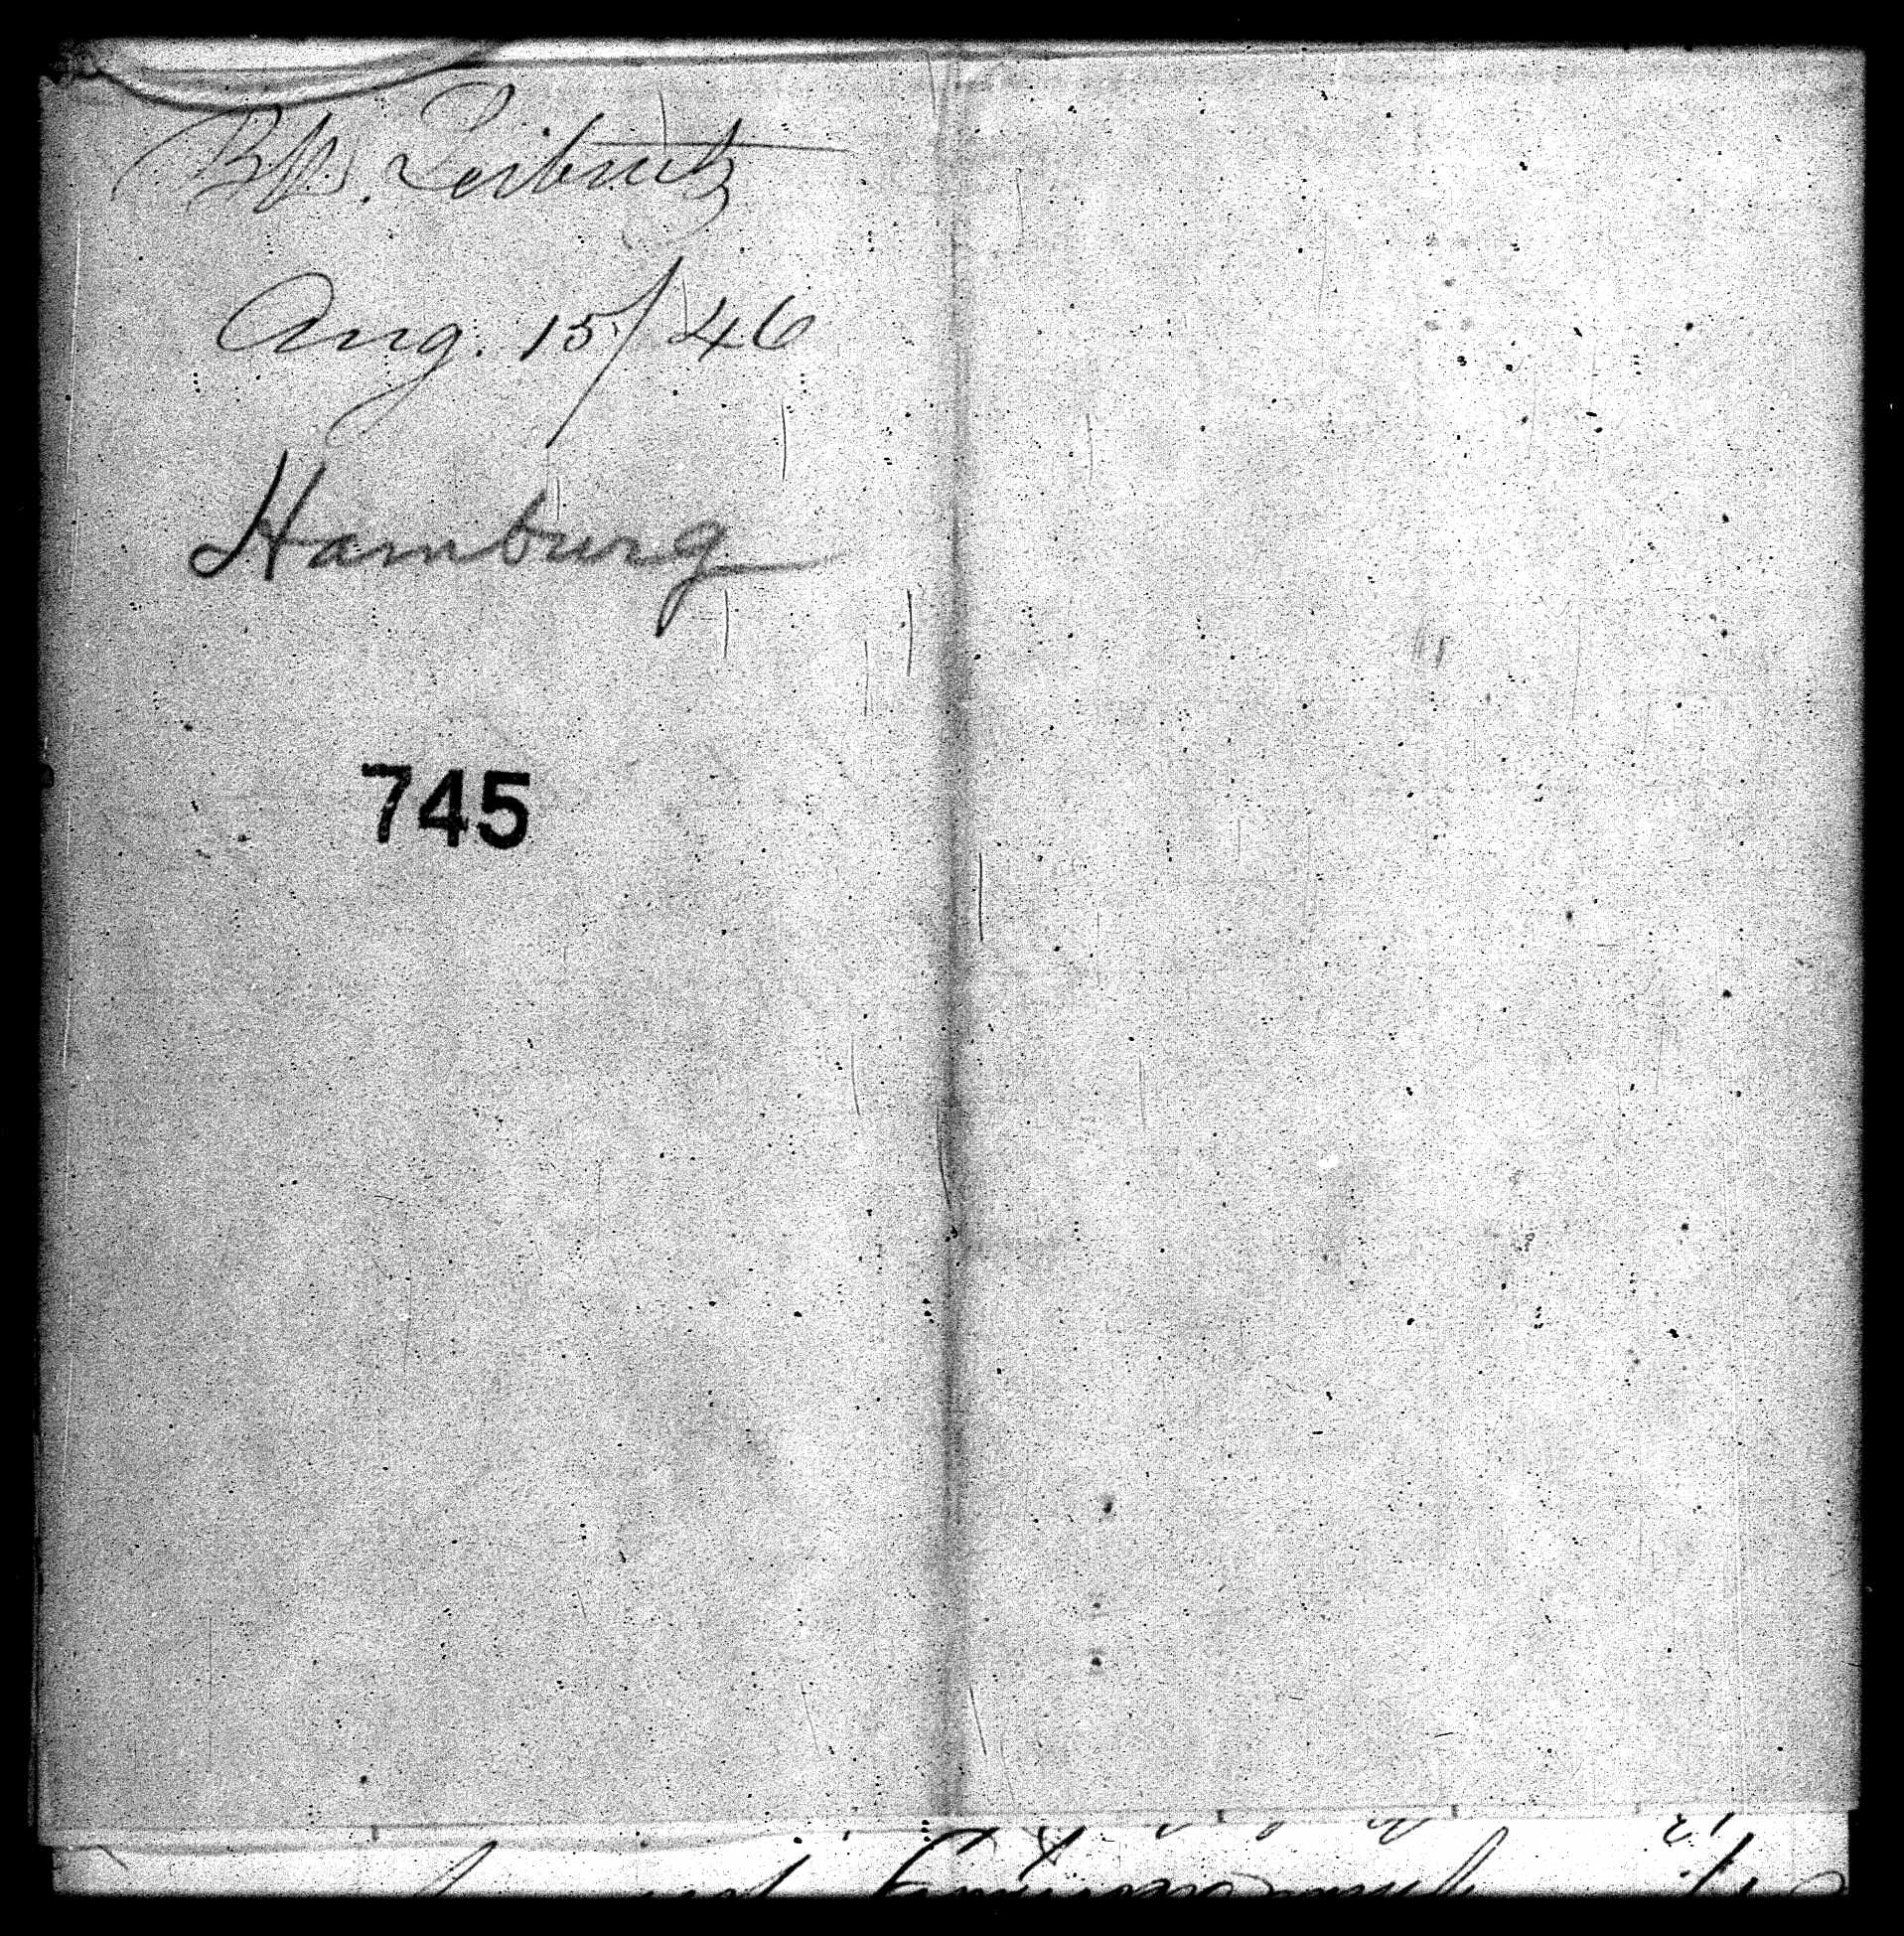 Bk. Leibnitz
Aug. 15/46
Hamburg
745